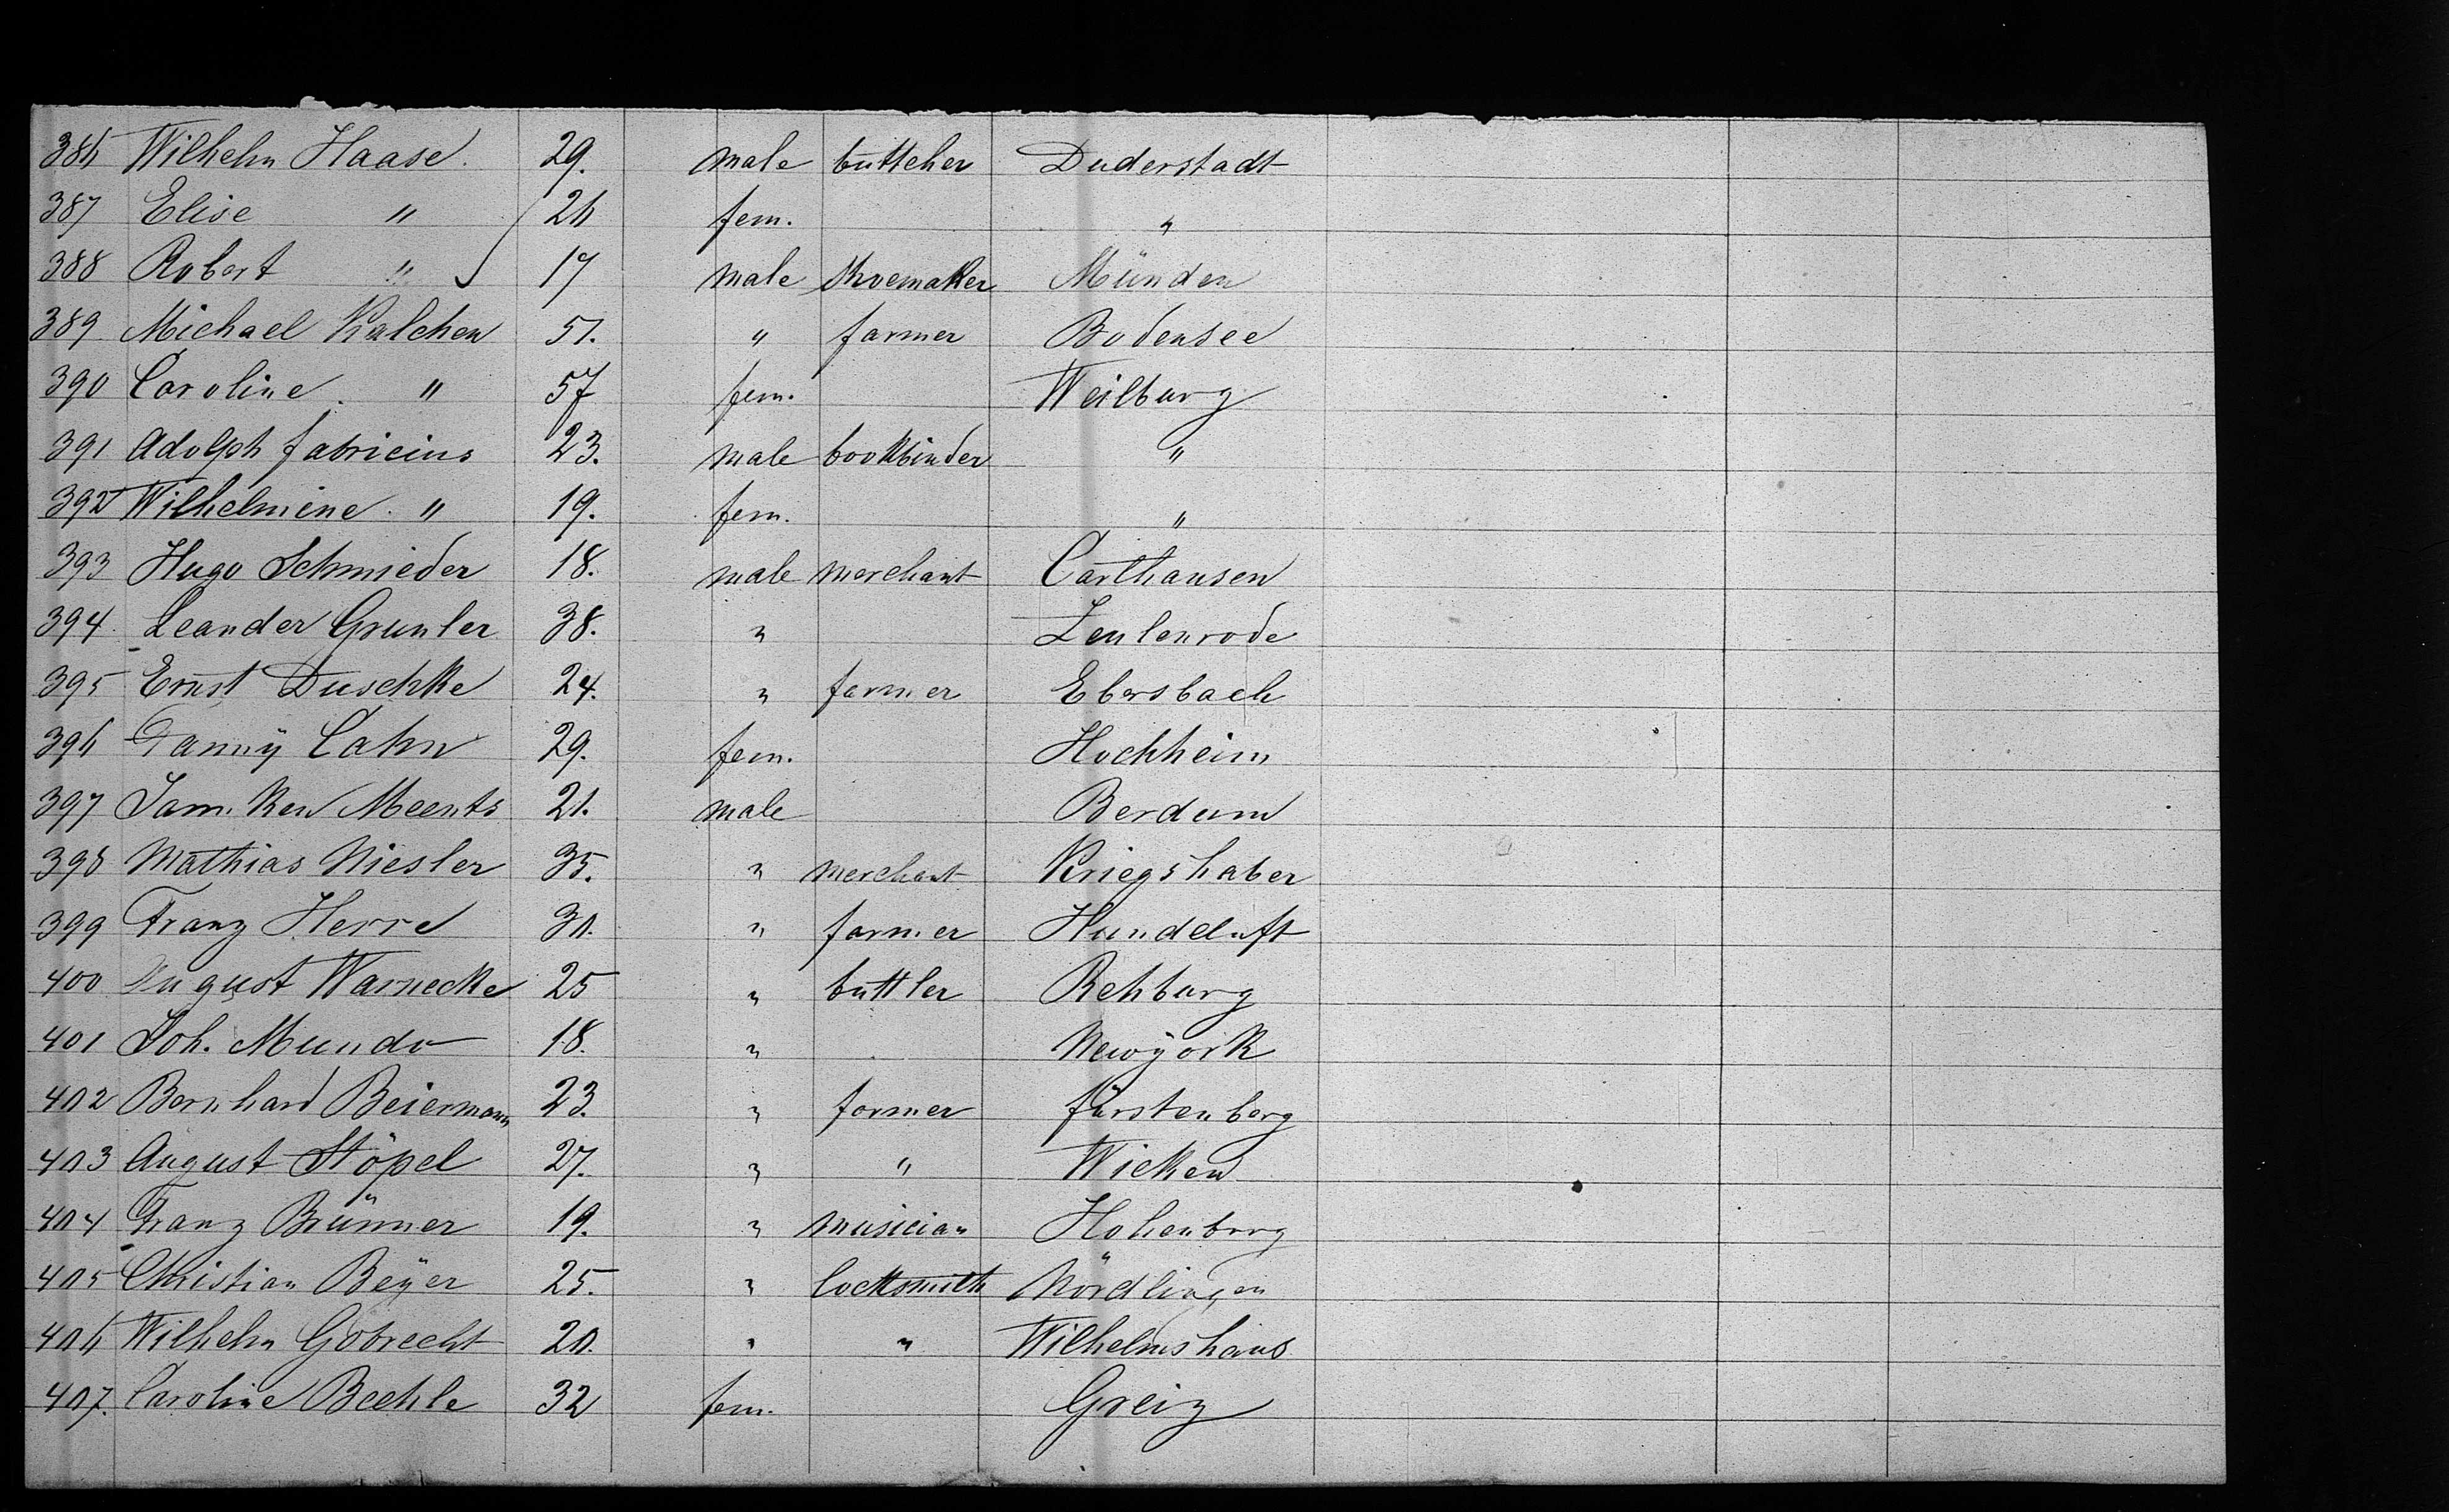 386 Wilhelm Haase. 29. male butteher Duderstadt
387 Elise " 26 fem. "
388 Robert " 17 male shoemaker Münden
389 Michael Kalchen 51. " farmer Bodensee
390 Caroline. " 57 fem. Weilburg
391 Adolph Fabricius 23. male bookbinder "
392 Wilhelmine. " 19. fem. "
393 Hugo Schmieder 18. male merchant Carthausen
394. Leander Grunler 38. " Zeulenrode
395 Ernst Duschke 24. " farmer Ebersbach
396 Fannÿ Cahn 29. fem. Hochheim
397 Meents 21. male Berdum
398 Mathias Niesler 35. " merchant Kriegshaber
399 Franz Herre 30. " farmer Hundeluft
400 August Warnecke 25 " buttler Rehburg
401 Joh. Mundo 18. " Newÿork
402 Bernhard Beiermann 23. " farmer Fürstenberg
403 August Stöpel 27. " " Wicken
404 Franz Brünner 19. " musician Hohenberg
405 Christian Beÿer 25. " locksmith Nördlingen
406 Wilhelm Gobrecht 20. " " Wilhelmshaus
407. Caroline Bechle 32 fem. Greiz